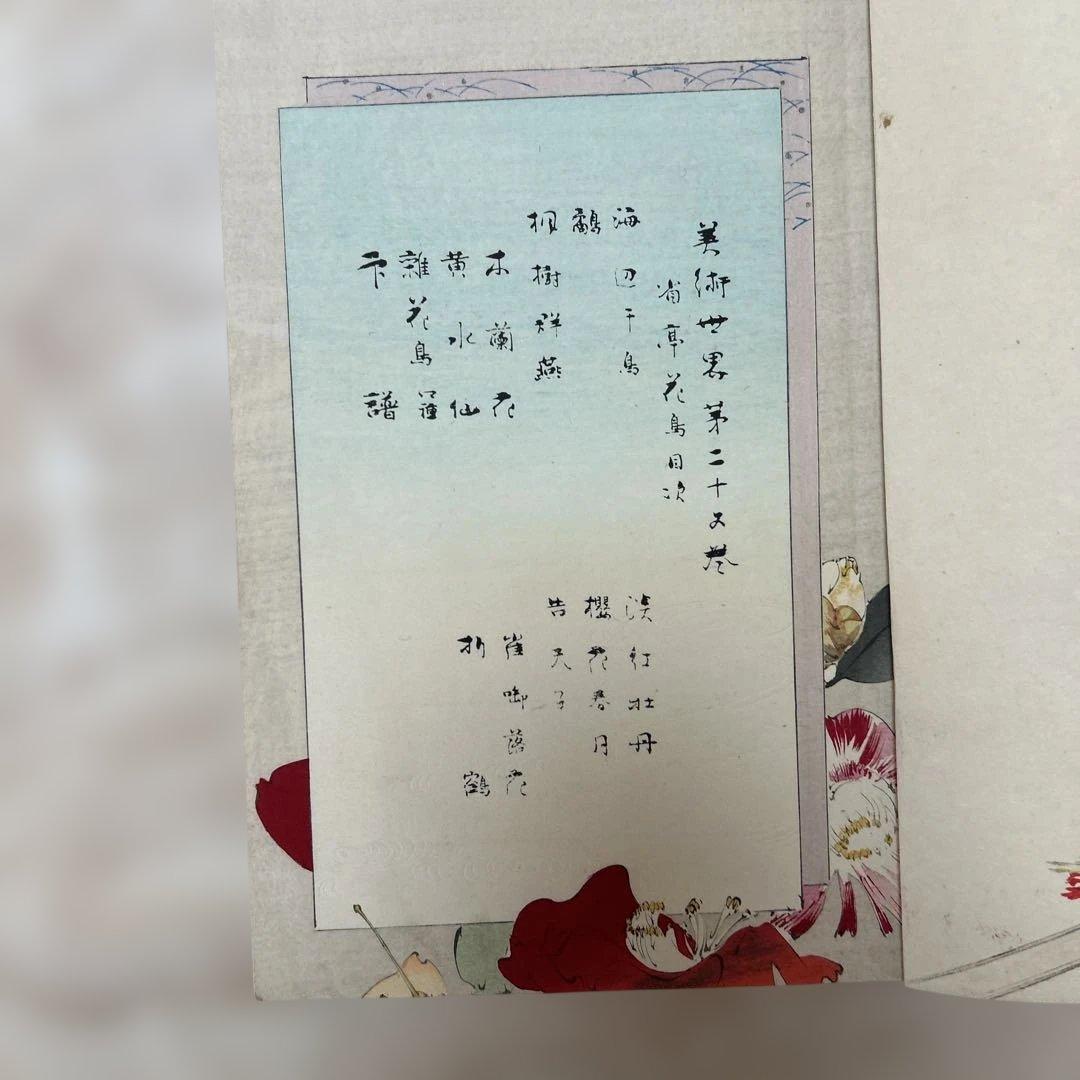 美術世界第二十五巻
省亭花鳥目次
海辺千鳥
淡紅牡丹
櫻花春月
樹群燕
告天子
木蘭花
雀啣落花
黄水仙
鶴
雜花鳥
譜